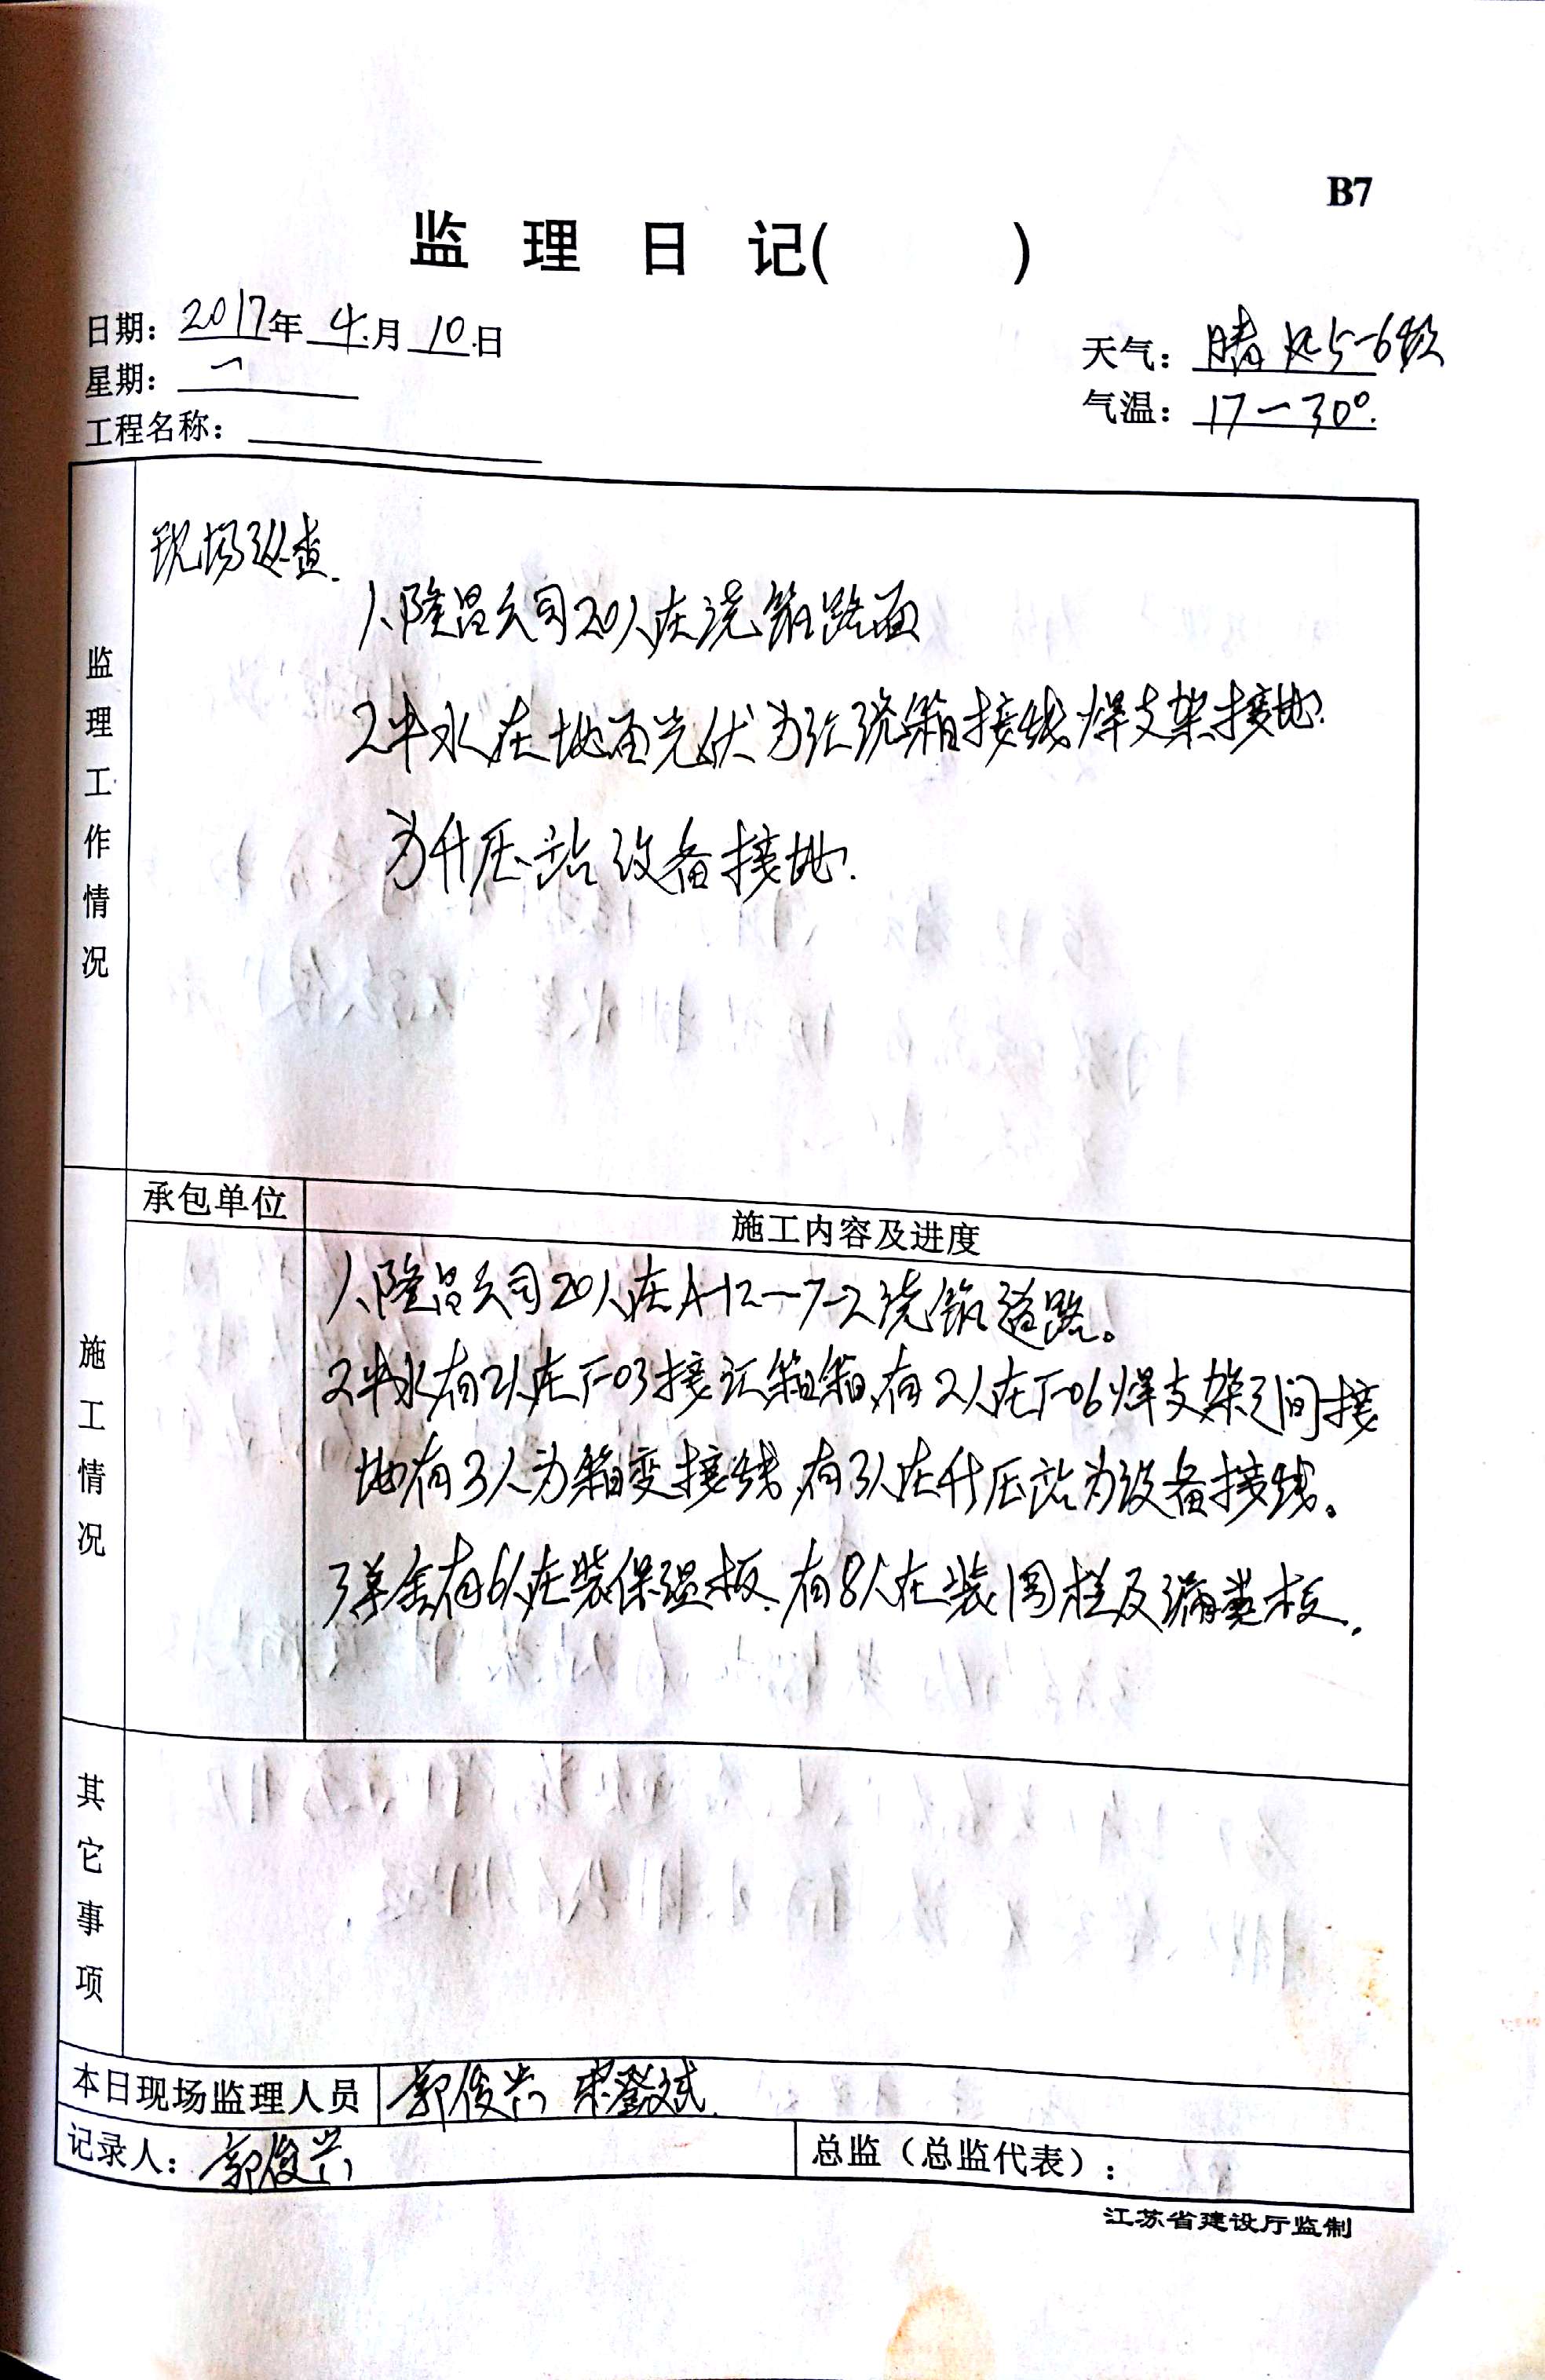 B7
监 理 日 记( )
日期: 2017年 4月 10日
天气: 晴 风5-6级
星期: 一
气温: 17-30°.
工程名称:
监理工作情况
现场巡查.
1、隆昌公司20人在浇筑路面
2中水在地面光伏为汇流箱接线焊支架接地.
为升压站设备接地.
施工情况
承包单位
施工内容及进度
1、隆昌公司20人在A-12-7-2浇筑道路。
2中水有2人在T-03接汇箱箱,有2人在T-06焊支架之间接
地有3人为箱变接线,有3人在升压站为设备接线。
有6人在装保温板.有8人在装围栏及
其它事项
本日现场监理人员 郭俊兴 宋登斌
记录人: 郭俊兴
总监(总监代表):
江苏省建设厅监制